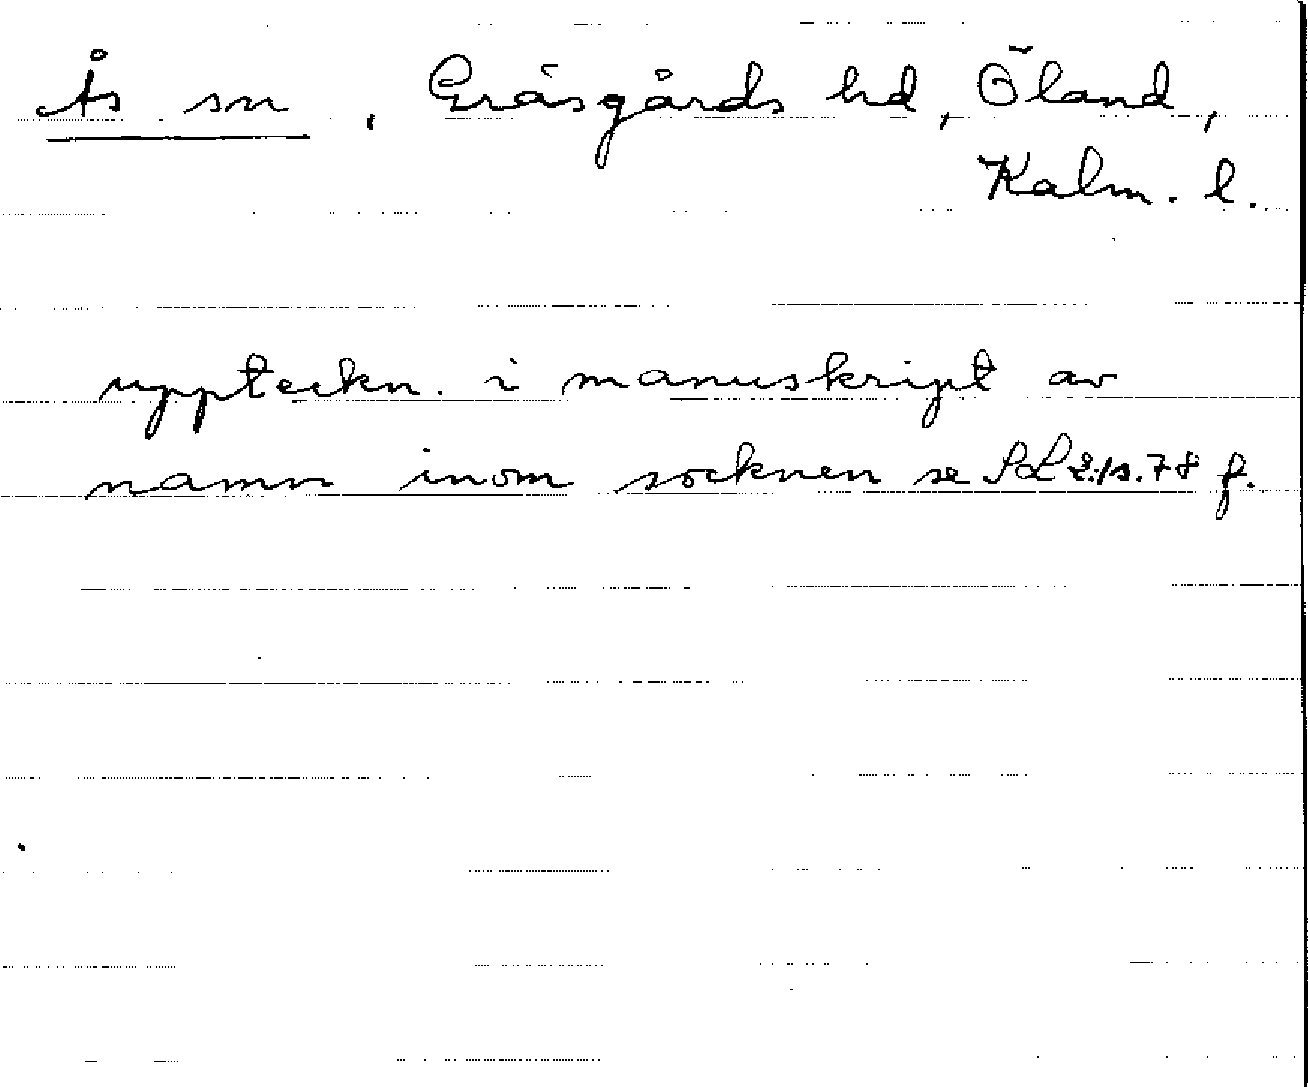 Ås sn, Gräsgårds hd, Öland,
Kalm. l.
uppteckn. i manuskript av
namn inom socknen se SL 2:1 s. 78 f.